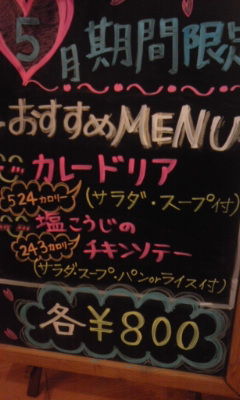 5月期間限定
おすすめMENU
カレードリア
524カロリー (サラダ・スープ付)
塩こうじの
243カロリー チキンソテー
(サラダスープ・パンorライス付)
各¥800